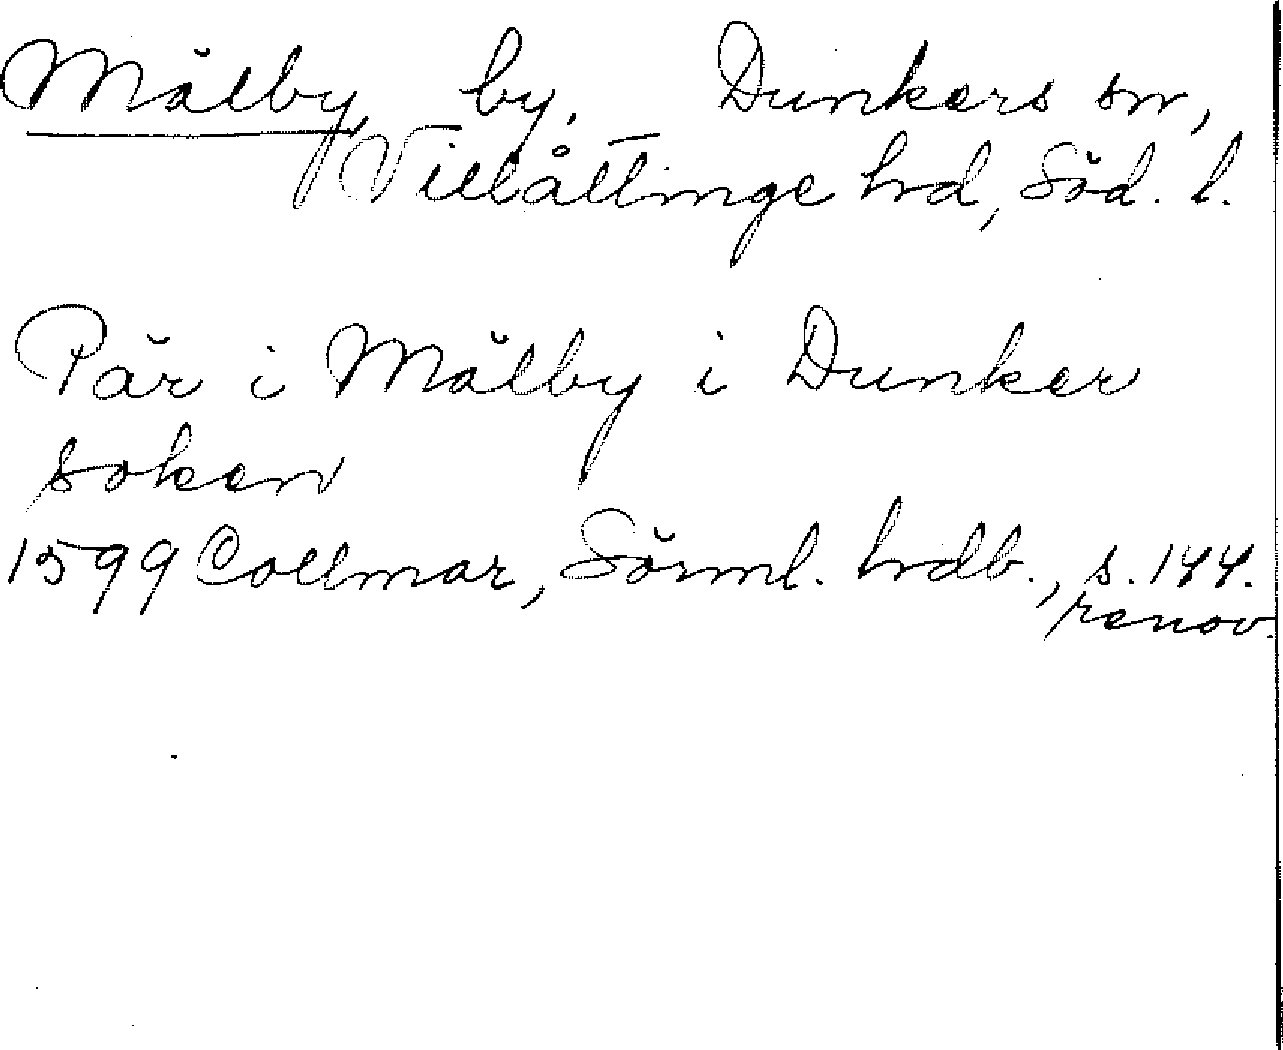 Mälby, by, Dunkers sn,
Villåttinge hd, Söd. l.
Pär i Mälby i Dunker
soken
1599 Collmar, Sörml. hrdb., s. 144.
renov.